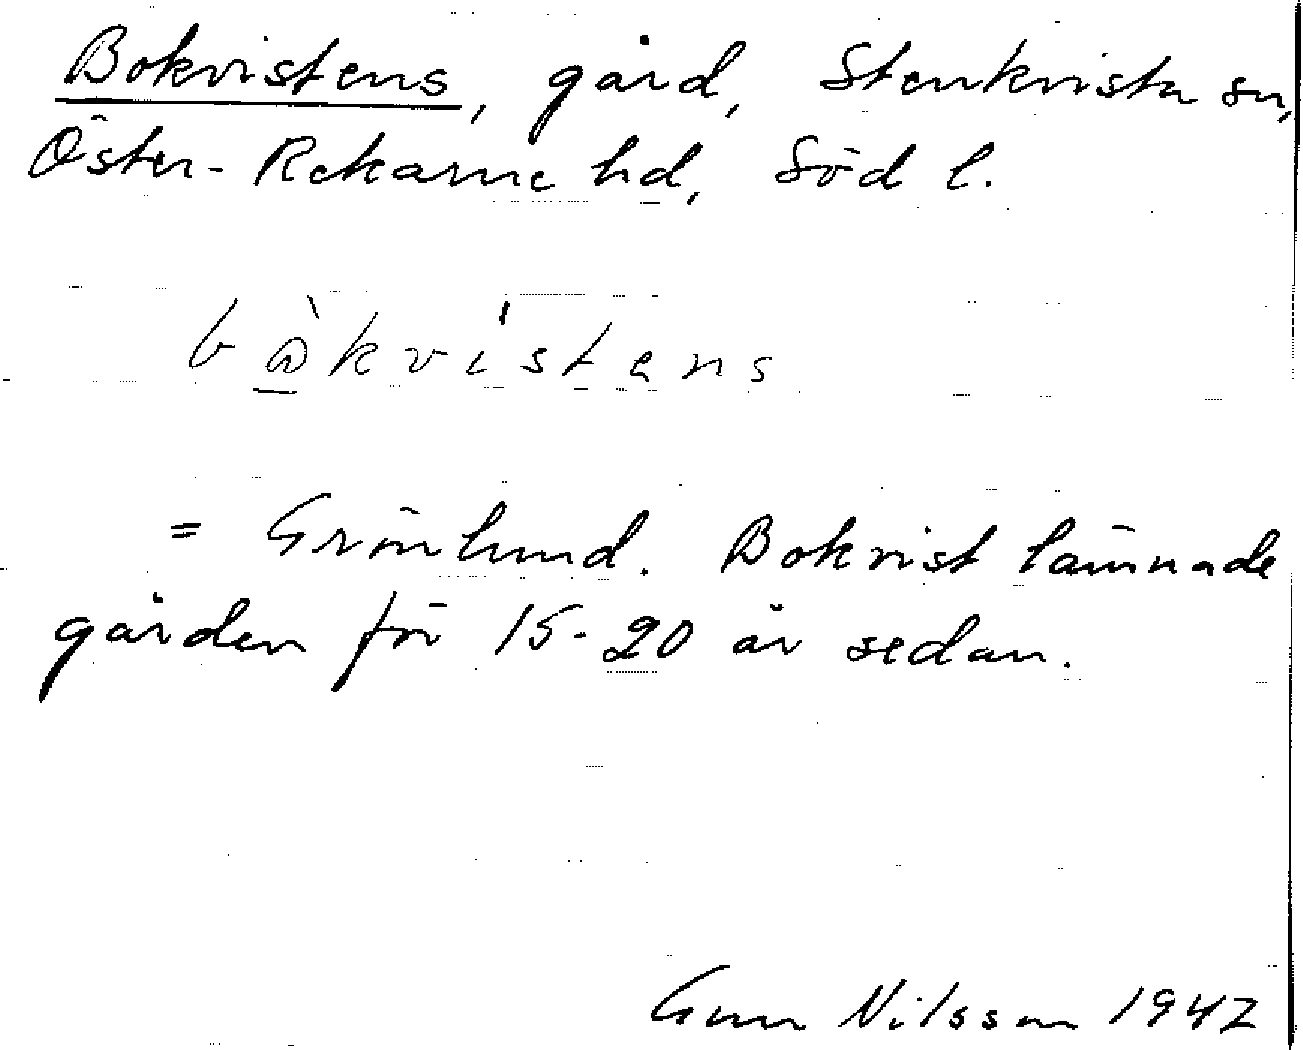 Bokvistens, gård, Stenkvista sn,
Öster-Rekarne hd, Söd l.
bὼ̲kvístens
= Grönlund. Bokvist lämnade
gården för 15-20 år sedan.
Gun Nilsson 1942